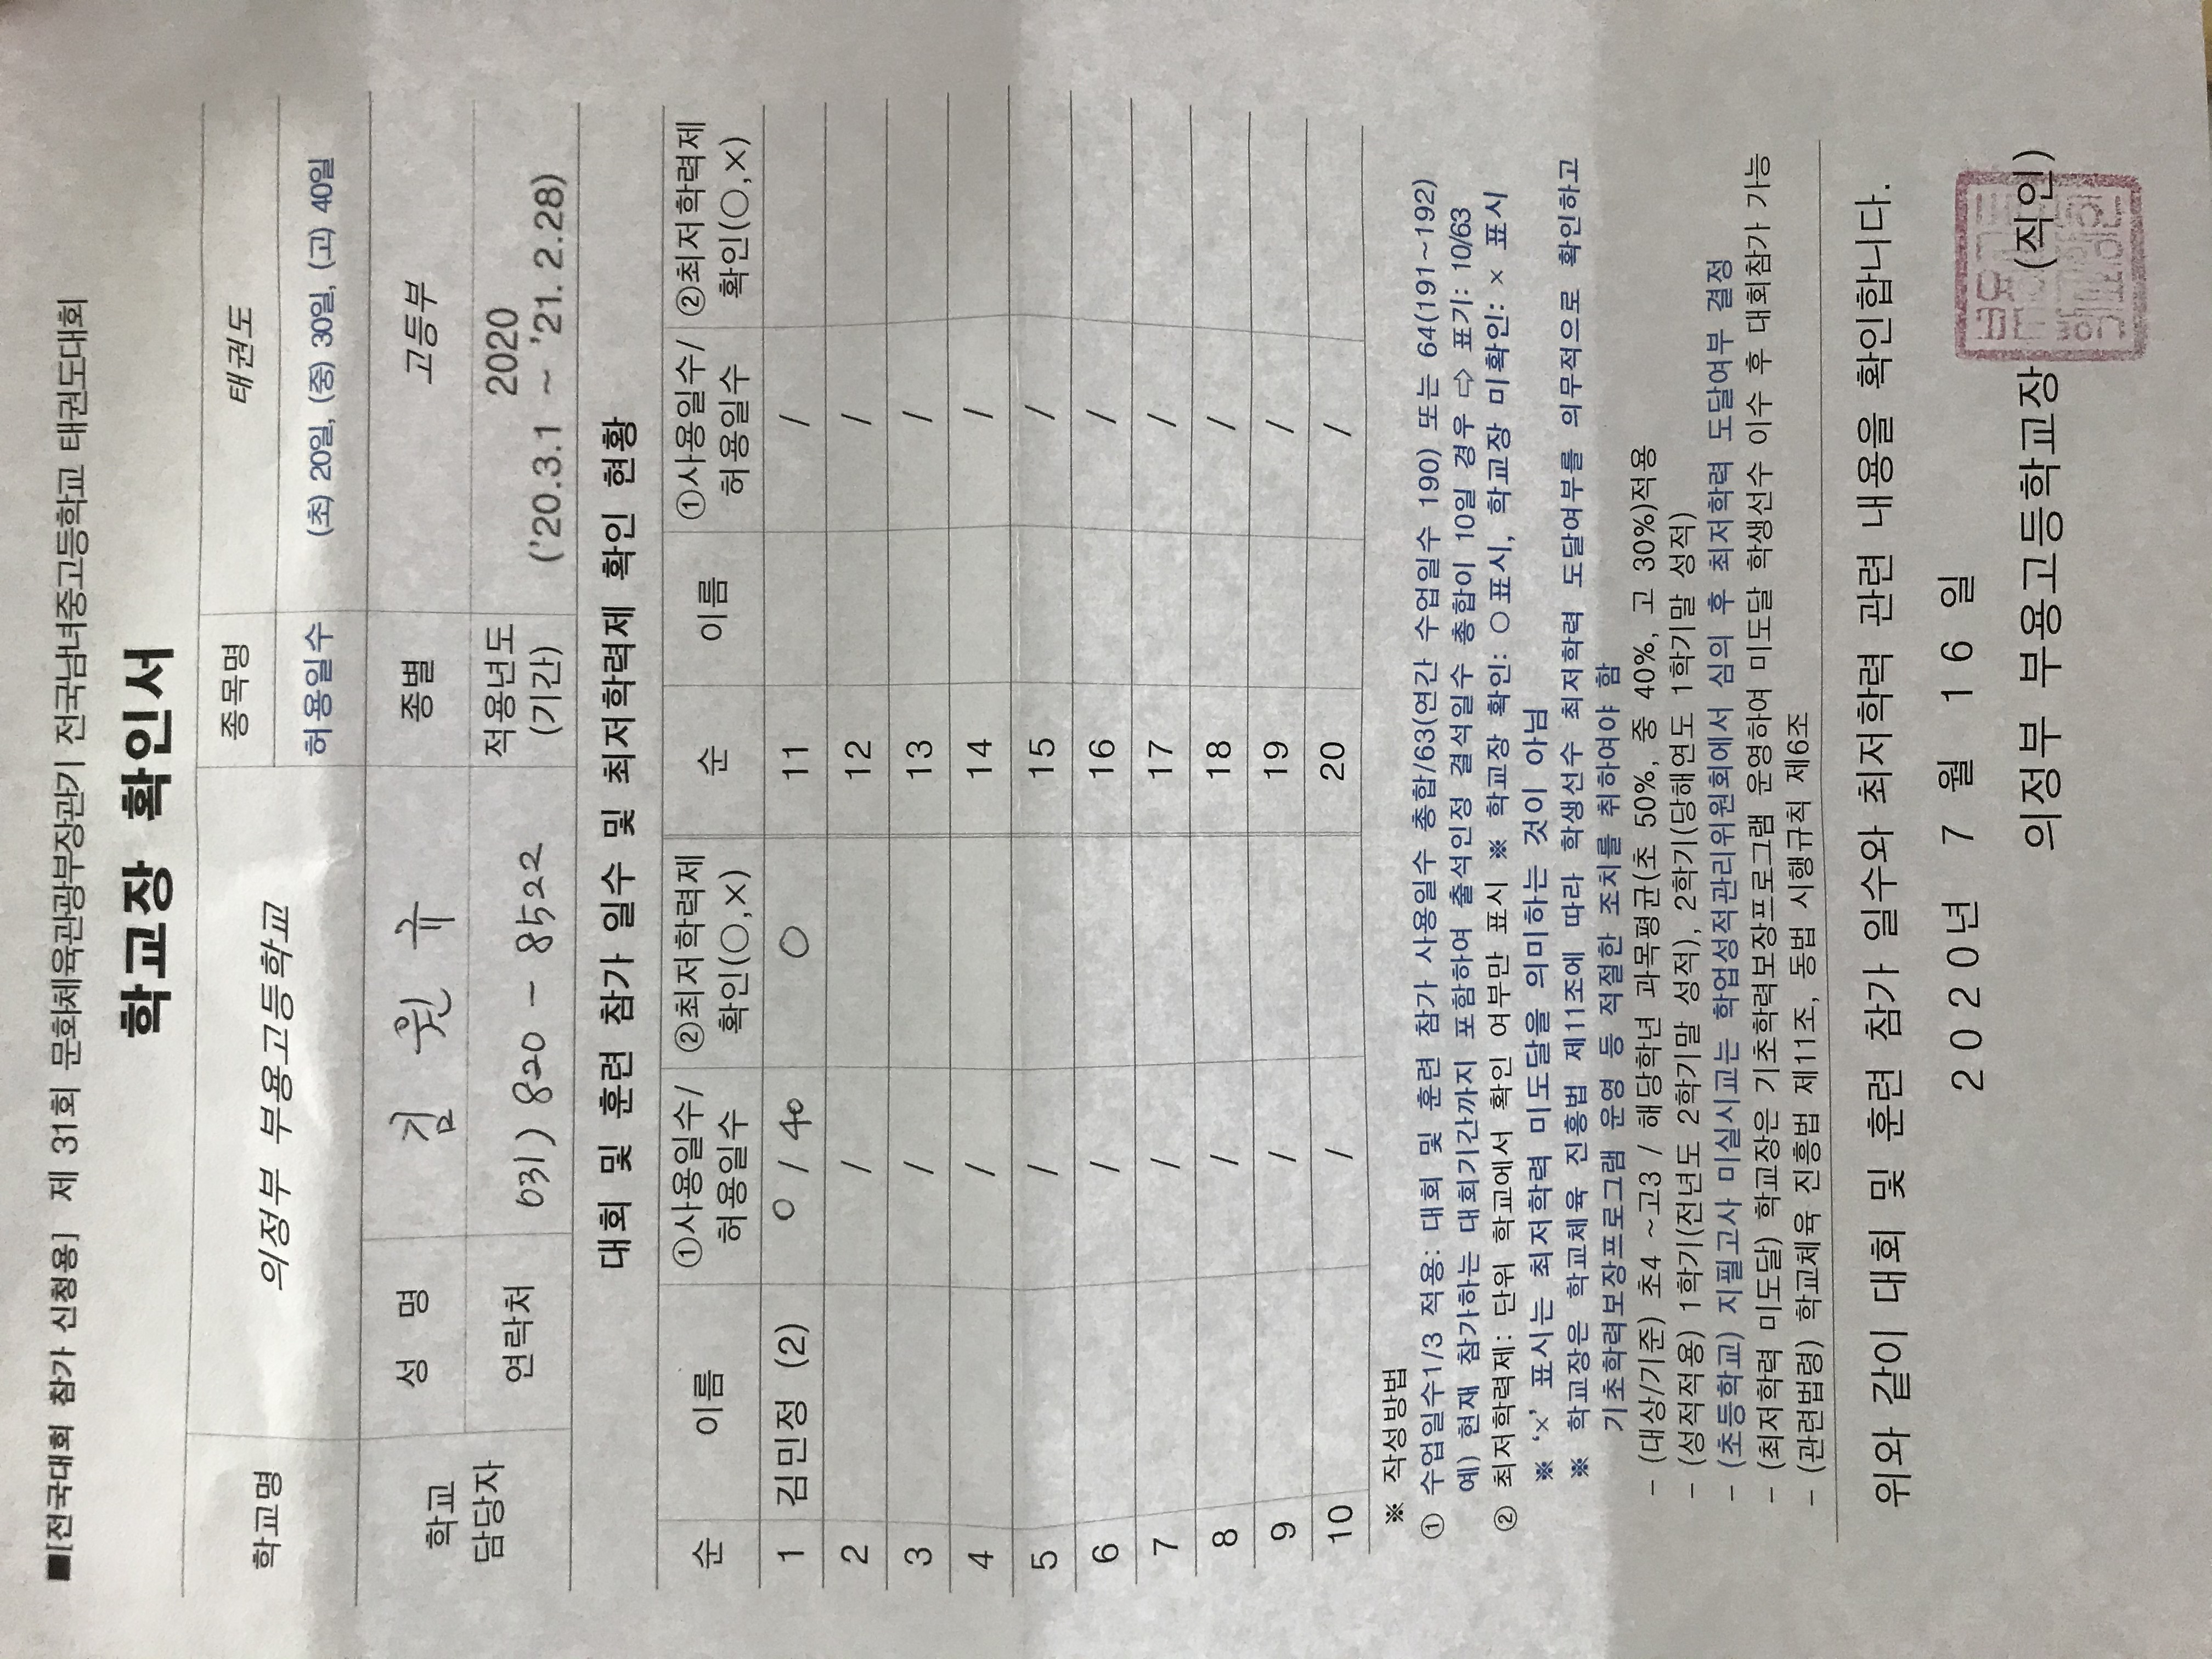 ■[전국대회 참가 신청용] 제 31회 문화체육관광부장관기 전국남녀중고등학교 태권도대회
학교장 확인서
학교명 의정부 부용고등학교 종목명 태권도
허용일수 (초) 20일, (중) 30일, (고) 40일
학교 담당자 성 명 김 원 규 종별 고등부
연락처 031) 820 - 8522 적용년도 (기간) 2020 ('20.3.1 ~ '21. 2.28)
대회 및 훈련 참가 일수 및 최저학력제 확인 현황
순 이름 ①사용일수/허용일수 ②최저학력제 확인(○,×) 순 이름 ①사용일수/허용일수 ②최저학력제 확인(○,×)
1 김민정 (2) 0 / 40 ○ 11 /
2 / 12 /
3 / 13 /
4 / 14 /
5 / 15 /
6 / 16 /
7 / 17 /
8 / 18 /
9 / 19 /
10 / 20 /
※ 작성방법
① 수업일수1/3 적용: 대회 및 훈련 참가 사용일수 총합/63(연간 수업일수 190) 또는 64(191~192)
예) 현재 참가하는 대회기간까지 포함하여 출석인정 결석일수 총합이 10일 경우 ⇨ 표기: 10/63
② 최저학력제: 단위 학교에서 확인 여부만 표시 ※ 학교장 확인: ○표시, 학교장 미확인: × 표시
※ ‘×’ 표시는 최저학력 미도달을 의미하는 것이 아님
※ 학교장은 학교체육 진흥법 제11조에 따라 학생선수 최저학력 도달여부를 의무적으로 확인하고
기초학력보장프로그램 운영 등 적절한 조치를 취하여야 함
- (대상/기준) 초4 ~고3 / 해당학년 과목평균(초 50%, 중 40%, 고 30%)적용
- (성적적용) 1학기(전년도 2학기말 성적), 2학기(당해연도 1학기말 성적)
- (초등학교) 지필고사 미실시교는 학업성적관리위원회에서 심의 후 최저학력 도달여부 결정
- (최저학력 미도달) 학교장은 기초학력보장프로그램 운영하여 미도달 학생선수 이수 후 대회참가 가능
- (관련법령) 학교체육 진흥법 제11조, 동법 시행규칙 제6조
위와 같이 대회 및 훈련 참가 일수와 최저학력 관련 내용을 확인합니다.
2020년 7 월 16 일
의정부 부용고등학교장 (직인)